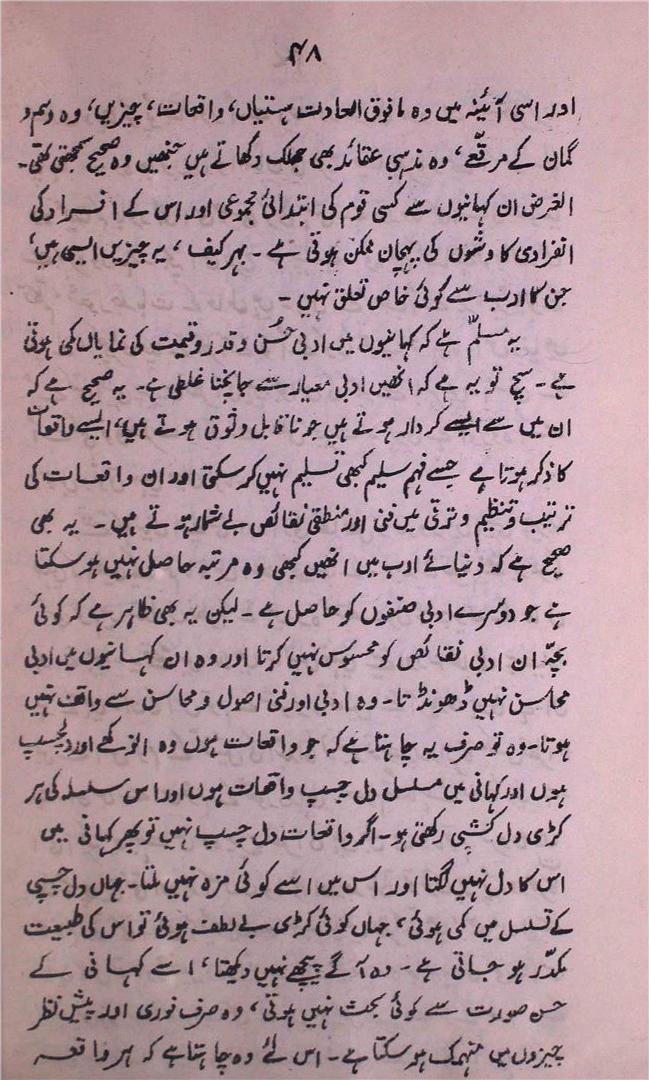 ۴۸
اور اسی آئینہ میں وہ مافوق العادت ہستیاں، واقعات، چیزیں، وہ وہم و
گمان کے مرقعے، وہ مذہبی عقائد بھی جھلک دکھاتے ہیں جنھیں وہ صحیح سمجھتی تھی۔
الغرض ان کہانیوں سے کسی قوم کی ابتدائی مجموعی اور اس کے افراد کی
انفرادی کاوشوں کی پہچان ممکن ہوتی ہے۔ بہر کیف، یہ چیزیں ایسی ہیں،
جن کا ادب سے کوئی خاص تعلق نہیں۔
یہ مسلّم ہے کہ کہانیوں میں ادبی حُسن و قدر و قیمت کی نمایاں کمی ہوتی
ہے۔ سچ تو یہ ہے کہ انھیں ادبی معیار سے جانچنا غلطی ہے۔ یہ صحیح ہے کہ
ان میں سے ایسے کردار ہوتے ہیں جو ناقابل وثوق ہوتے ہیں، ایسے واقعات
کا ذکر ہوتا ہے جسے فہم سلیم کبھی تسلیم نہیں کر سکتی اور ان واقعات کی
ترتیب و تنظیم و ترقی میں فنی اور منطقی نقائص بے شمار ہوتے ہیں۔ یہ بھی
صحیح ہے کہ دنیائے ادب میں انھیں کبھی وہ مرتبہ حاصل نہیں ہو سکتا
ہے جو دوسرے ادبی صنفوں کو حاصل ہے۔ لیکن یہ بھی ظاہر ہے کہ کوئی
بچّہ ان ادبی نقائص کو محسوس نہیں کرتا اور وہ ان کہانیوں میں ادبی
محاسن نہیں ڈھونڈتا۔ وہ ادبی اور فنی اصول و محاسن سے واقف نہیں
ہوتا۔ وہ تو صرف یہ چاہتا ہے کہ جو واقعات ہوں وہ انوکھے اور دلچسپ
ہوں اور کہانی میں مسلسل دل چسپ واقعات ہوں اور اس سلسلہ کی ہر
کڑی دل کشی رکھتی ہو۔ اگر واقعات دل چسپ نہیں تو پھر کہانی میں
اس کا دل نہیں لگتا اور اس میں اسے کوئی مزہ نہیں ملتا۔ جہاں دل چسپی
کے تسلسل میں کمی ہوئی، جہاں کوئی کڑی بے لطف ہوئی تو اس کی طبیعت
مکدّر ہو جاتی ہے۔ وہ آگے پیچھے نہیں دیکھتا، اسے کہانی کے
حسن صورت سے کوئی بحث نہیں ہوتی، وہ صرف فوری اور پیش نظر
چیزوں میں منہمک ہو سکتا ہے۔ اس لئے وہ چاہتا ہے کہ ہر واقعہ